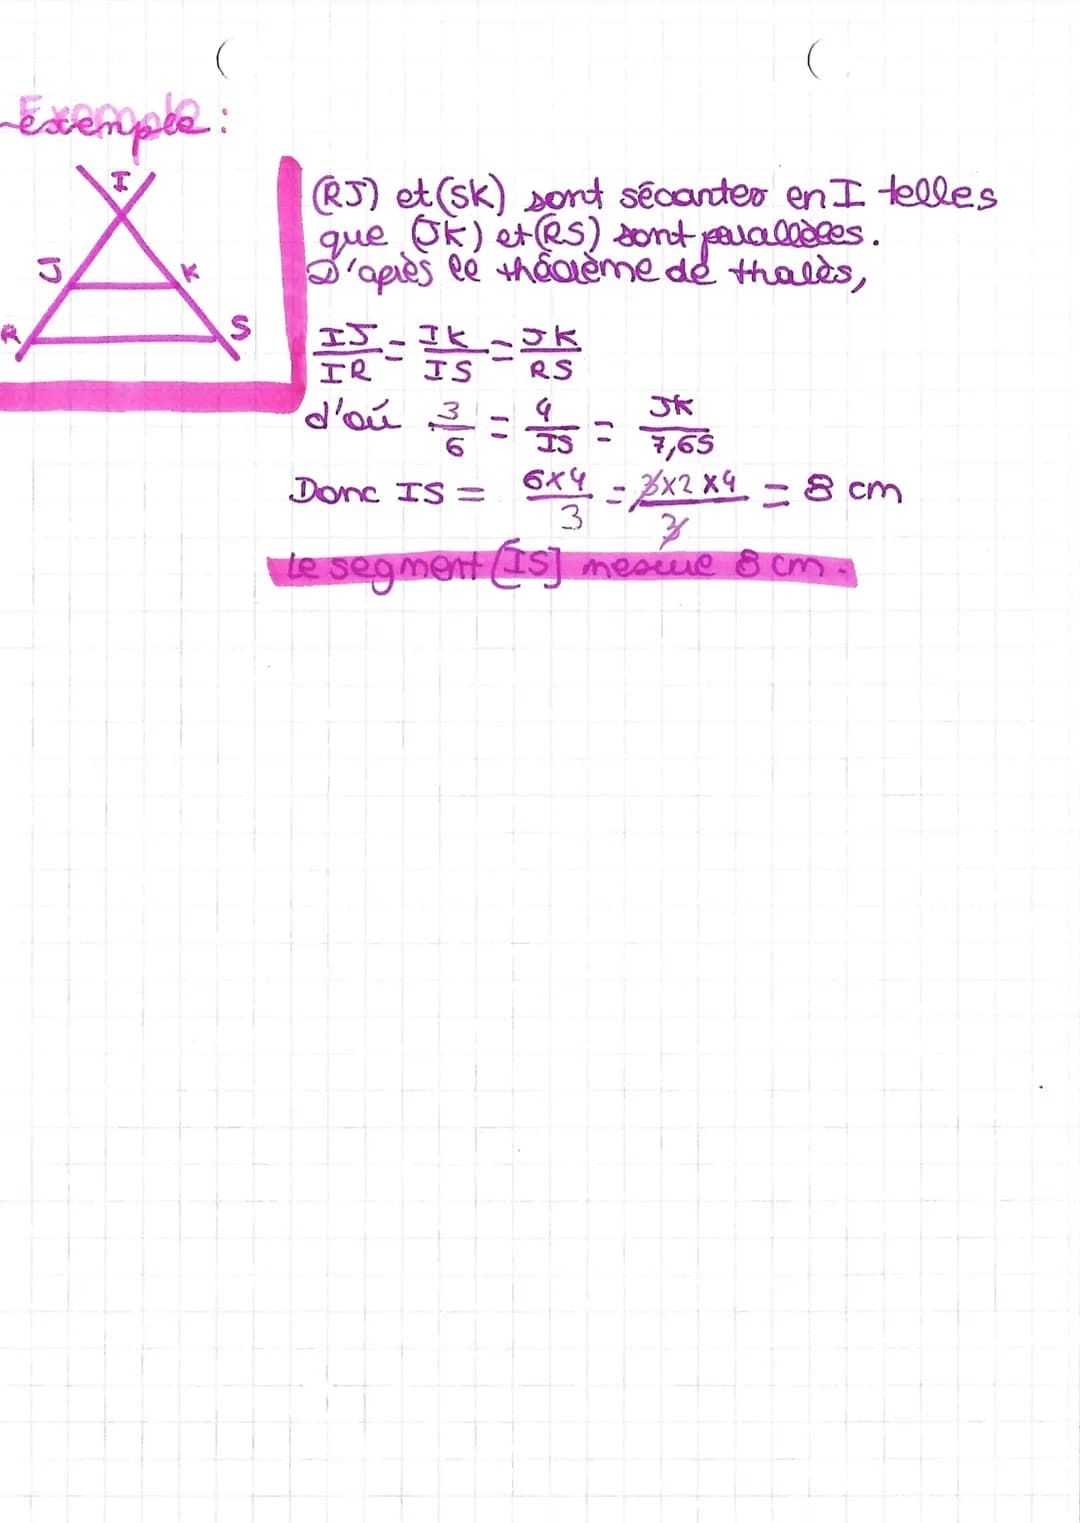 Exemple :
I
J
K
R
S
(RJ) et (SK) sont sécantes en I telles
que (JK) et (RS) sont parallèles.
D'après le théorème de thalès,
IJ/IR = IK/IS = JK/RS
d'où 3/6 = 4/IS = JK/7,65
Donc IS = 6×4/3 = 3×2×4/3 = 8 cm
Le segment [IS] mesure 8 cm.